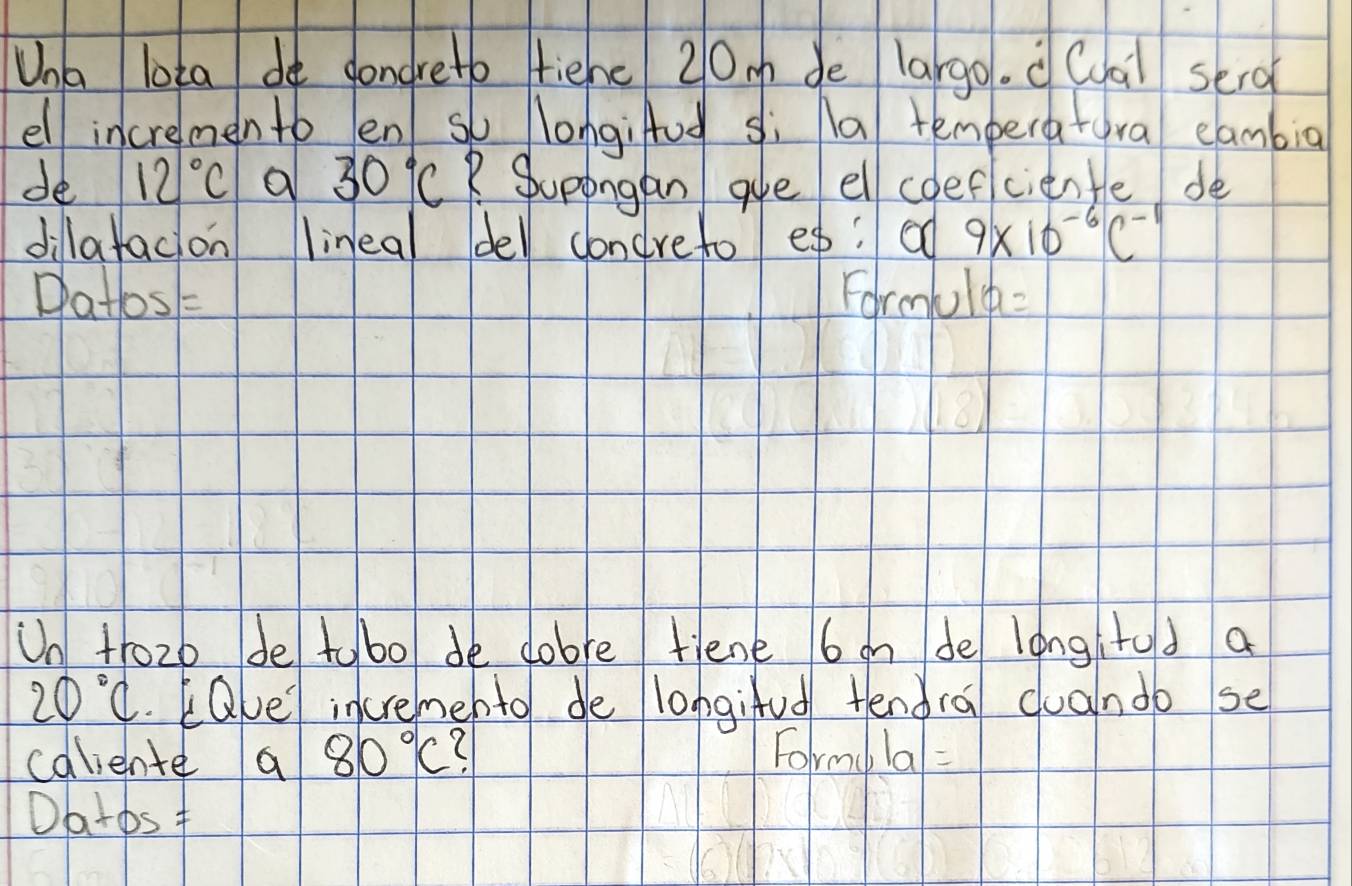 Una loza de concreto tiene 20m de largo. ¿Cuál será
el incremento en su longitud si la temperatura cambia
de 12°C a 30°C? Supongan que el coeficiente de
dilatación lineal del concreto es: α 9x10⁻⁶C⁻¹
Datos= Formula=
Un trozo de tubo de cobre tiene 6m de longitud a
20°C. ¿Qué incremento de longitud tendrá cuando se
caliente a 80°C? Formula=
Datos=